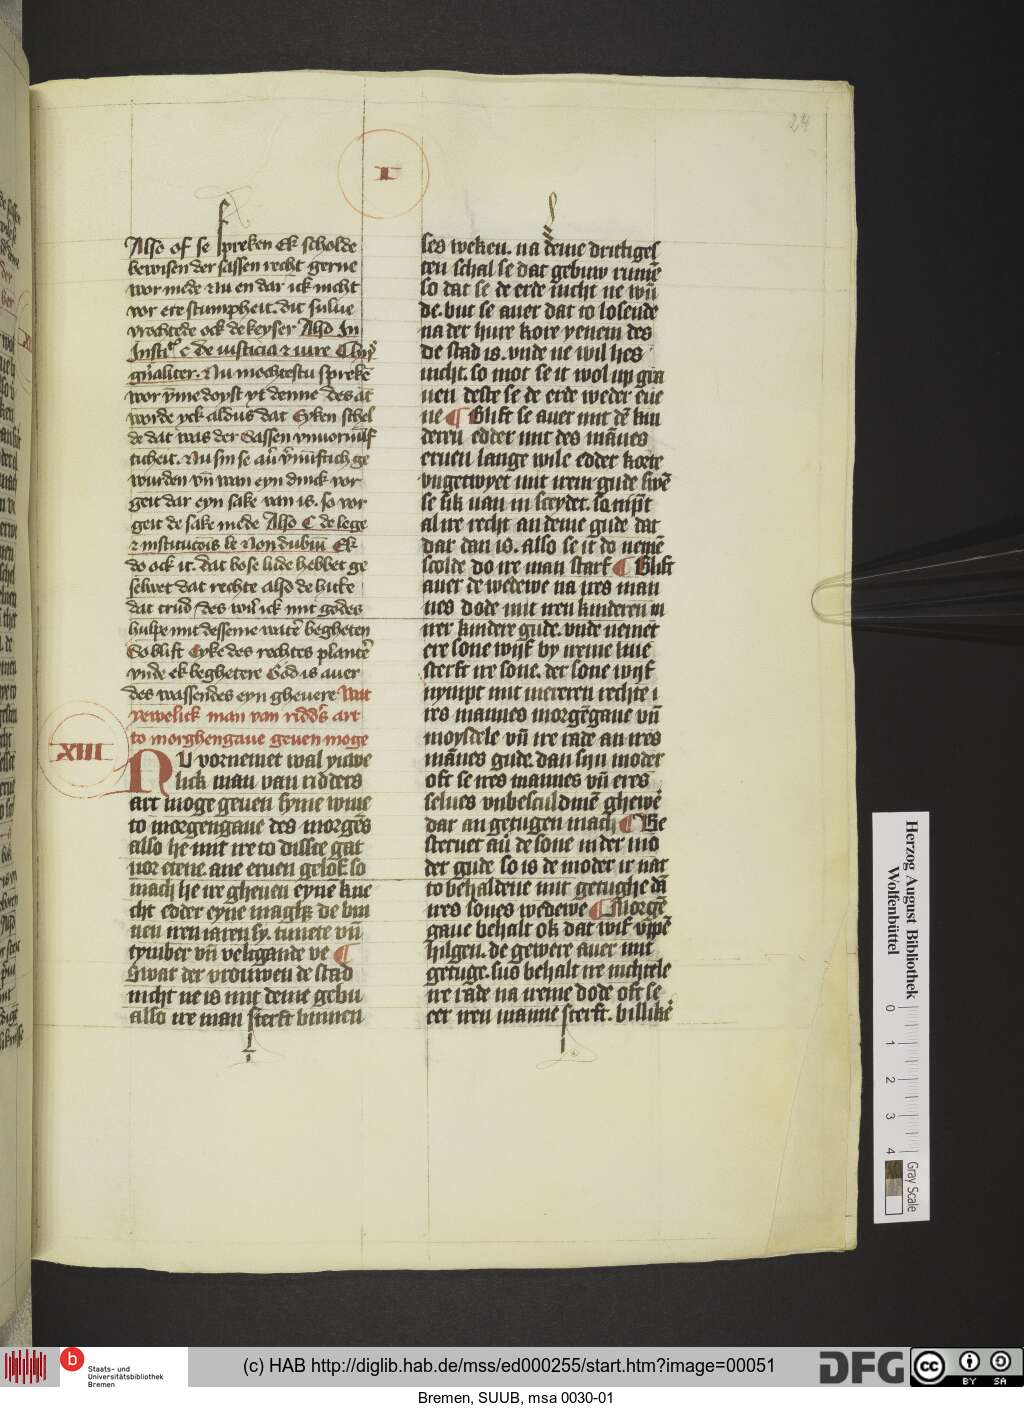 24
I
Also of se spreken Ek scholde
bewisen der sassen recht gerne
wor mede Nu en dar ick nicht
vor ere stumpheit. dit sulue
vrochtede ock de keyser Also In
Insti. c de iusticia ⁊ iure
gn̄aliter. Nu mochtestu sprekē
wor v̄me doyst yt denne des at
worde yck aldus dat Eyken schel
de dat was der Sassen
ticheit. Nu sin se
wurden vn̄ wan eyn dinck vor
geit dar eyn sake van is. so vor
geit de sake mede Also C de lege
Ek
do ock it. dat bose lude hebbet ge
felwet dat rechte also de hutke
dat des wil ick mit godes
hulpe mit desseme begheten
So blift Eyke des rechtes
vnde ek beghetere God is auer
des wassendes eyn gheuere Wat
yewelick man van ridd's art
to morghengaue geuen moge
XIII
NU vornemet wal yuwe
lick man van ridders
art moge geuen syme wiue
to morgengaue des morgēs
also he mit ire to dissce gat
vor etene. ane eruen gelof so
mach he ire gheuen eyne kne
cht edder eyne maghet de bin
nen iren iaren sy. tunete vn̄
tymber vn̄ veltgande ve ¶
Swat der vrouwen de stad
nicht ne is mit deme gebu
also ire man sterft binnen
ses weken. na deme drittiges
ten schal se dat gebuw rumē
so dat se de erde nicht ne wū
de. but se auer dat to losende
na der bure kore yenem des
de stad is. vnde ne wil hes
nicht. so mot se it wol up gra
uen deste se de erde weder eue
ne ¶ Blift se auer mit dē kin
deren edder mit des mānes
eruen lange wile edder korte
vngetwyet mit irem gude swē
se sik uan in sceydet. so nip̄t
al ire recht an deme gude dat
dar dan is. also se it do nemē
scolde do ire man starf ¶ Blift
auer de wedewe na ires man
nes dode mit iren kinderen in
irer kindere gude. vnde nemet
ere sone wijf by ireme liue
sterft ire sone. der sone wijf
nympt mit mereren rechte i
res mannes morgēgaue vn̄
moysdele vn̄ ire rade an ires
mānes gude. dan sijn moder
oft se ires mannes vn̄ eres
selues vnbesculdinē ghewē
dar an getugen mach ¶ Be
steruet au̇ de sone in der mo
der gude so is de moder ir nat
to behaldene mit getughe dā
ires sones wedewe ¶ Morgē
gaue behalt ok dat wif v̄ppē
hilgen. de gewere auer mit
getuge. sus behalt ire nichtele
ire rade na ireme dode oft se
eer iren manne sterft. billikē
Herzog August Bibliothek
Wolfenbüttel
0 1 2 3 4
Gray Scale
b Staats- und
Universitätsbibliothek
Bremen
(c) HAB http://diglib.hab.de/mss/ed000255/start.htm?image=00051
DFG
cc BY SA
Bremen, SUUB, msa 0030-01